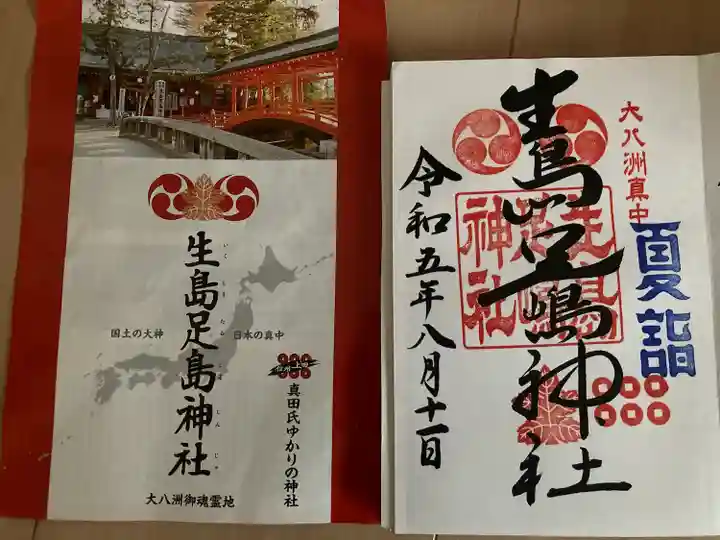 生島足島神社
いくしまたるしまじんじゃ
国土の大神
日本の真中
真田氏ゆかりの神社
大八洲御魂霊地
大八洲真中
夏詣
生島足嶋神社
令和五年八月十一日